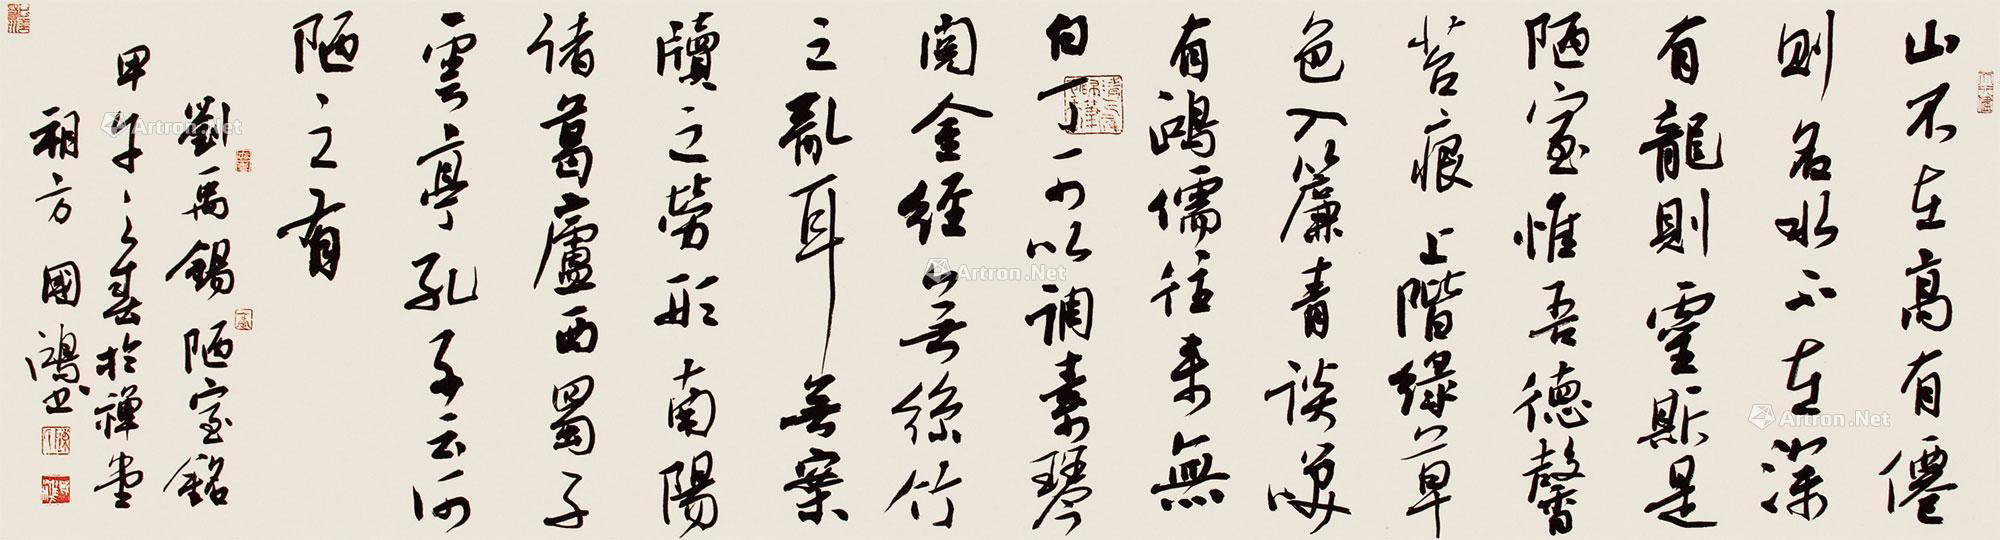 山不在高有僊
則名水不在深
有龍則靈斯是
陋室惟吾德馨
苔痕上階緑草
色入簾青談笑
有鴻儒往来無
白丁可以調素琴
閱金經無絲竹
之亂耳無案
牘之勞形南陽
諸葛廬西蜀子
雲亭孔子云何
陋之有
劉禹錫陋室銘
甲午之春於禪堂
湘方國鴻書
Artron.Net
Artron.Net
Artron.Net